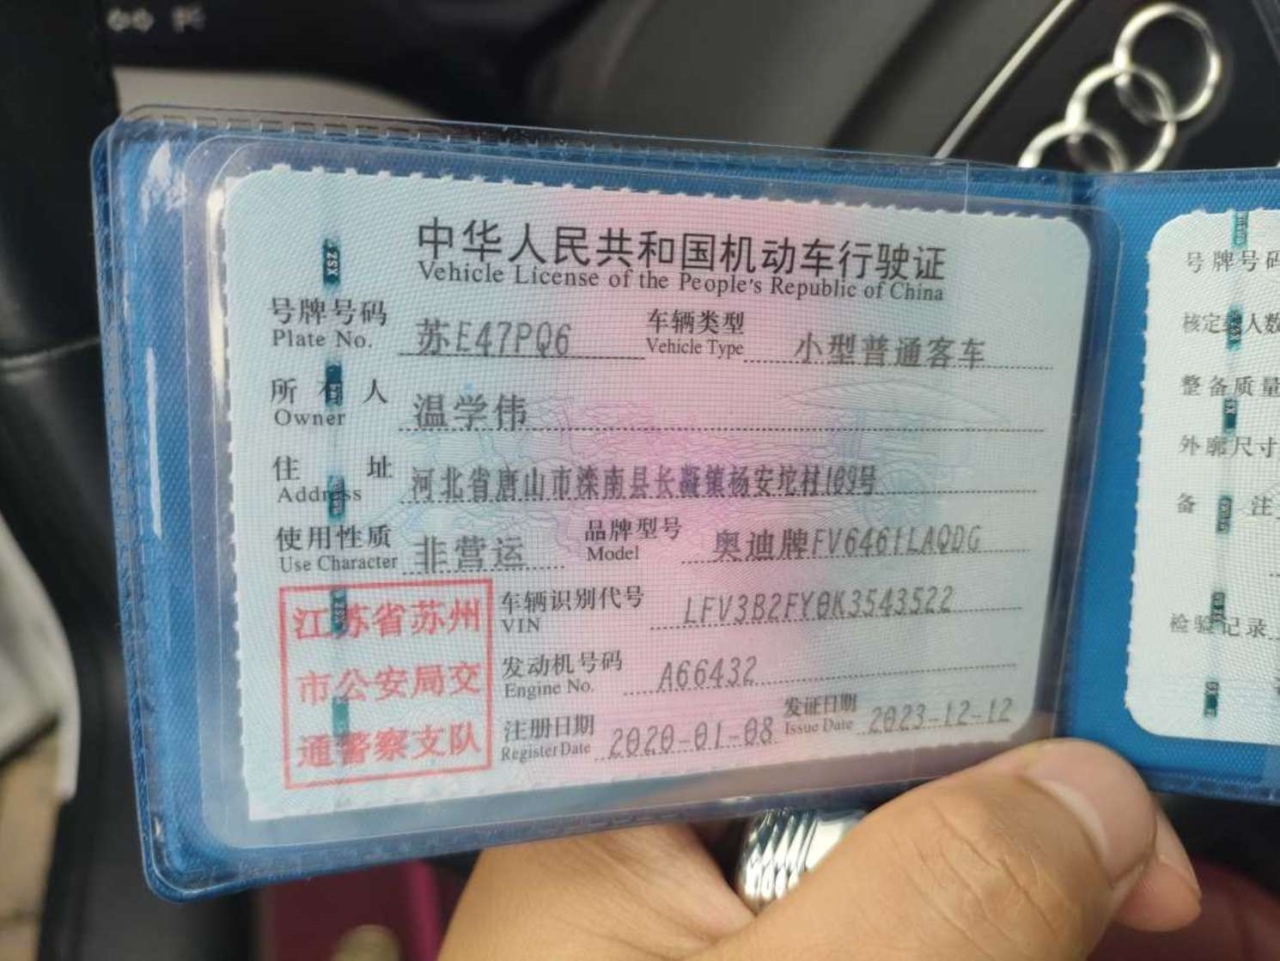 中华人民共和国机动车行驶证
Vehicle License of the People's Republic of China
号牌号码 苏E47PQ6 车辆类型 小型普通客车
Plate No. Vehicle Type
所有人 温学伟
Owner
住址 河北省唐山市滦南县长凝镇杨安坨村109号
Address
使用性质 非营运 品牌型号 奥迪牌FV6461LAQDG
Use Character Model
江苏省苏州
市公安局交
通警察支队
车辆识别代号 LFV3B2FY0K3543522
VIN
发动机号码 A66432
Engine No.
注册日期 2020-01-08 发证日期 2023-12-12
Register Date Issue Date
号牌号码
核定载人数
整备质量
外廓尺寸
备注
检验记录